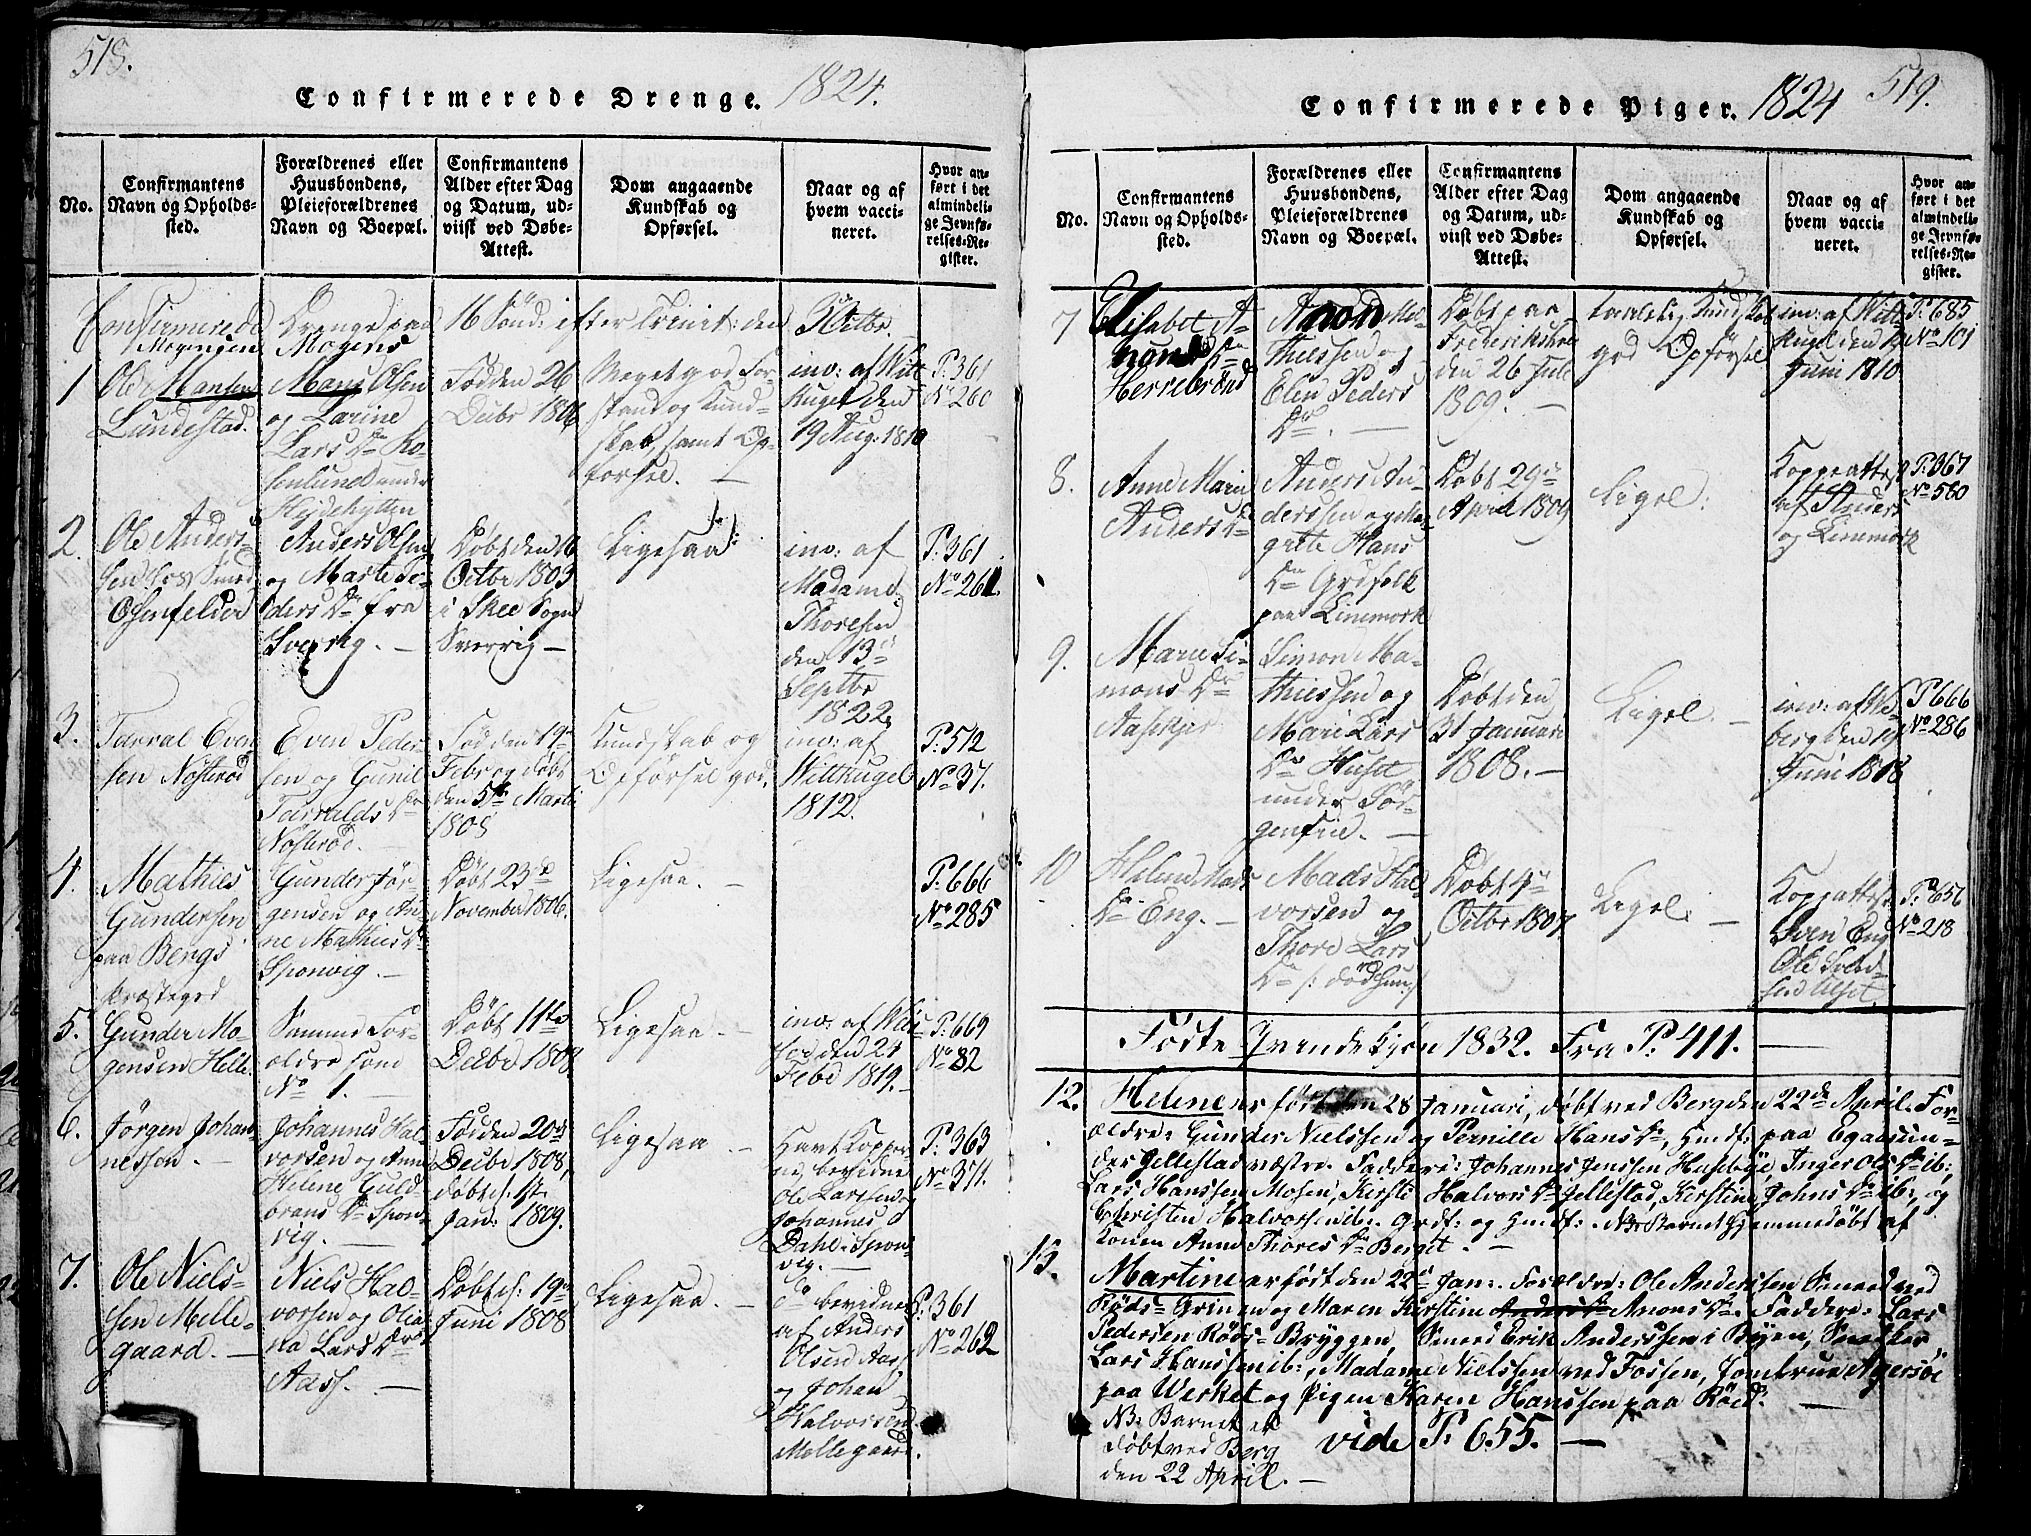 518.
Confirmerede Drenge. 1824.
No.
Confirmantens
Navn og Opholds-
sted.
Forældrenes eller
Huusbondens,
Pleieforældrenes
Navn og Boepæl.
Confirmantens
Alder efter Dag
og Datum, ud-
viist ved Døbe-
Attest.
Dom angaaende
Kundskab og
Opførsel.
Naar og af
hvem vacci-
neret.
Hvor an-
ført i det
almindeli-
ge Jevnfø-
relses-Re-
gister.
Confirmerede Drenge paa 16 Sönd: efter Trinit: den 3 Octbr.
1
Mogensen
Ole Mansen
Lundestad.
Mogens
Mans Olsen
og Larine
Lars Dr Ro-
senlund under
Hejdehytten
Fød den 26
Decbr 1806
Meget god For-
stand og Kund-
skab, samt Op-
førsel. —
inv: af Witt-
kugel den
19 Aug: 1810
P: 361
No 260
2.
Ole Anders-
sen hos Smed
Osenfelder
Anders Olsen
og Marte Pe-
ders Dr fra
Sverrig. —
Döbt den 16
Octbr 1803
i Skee Sogn
Sverrig —
Ligesaa:
inv: af
Madame
Thoresen
den 13de
Septbr
1822.
P: 361
No 261.
3.
Tarral Even
sen Nösteröd
Even Peder-
sen og Gunil
Tarralds Dr
Nösteröd. —
Fød den 19de
Febr og döbt
den 5te Marti
1808
Kundskab og
Opförsel god.
inv: af
Wittkugel
1812.
P: 512
No 37.
4.
Mathies
Gundersen
paa Bergs
Præstegrd
Gunder Jör-
gensen og An-
ne Mathies Dr
Sponvig. —
Döbt 23de
November 1806.
Ligesaa. —
P: 666
No 285
5.
Gunder Mo-
gensen Helle.
Samme For-
ældre som
No 1.
Döbt 11te
Decbr 1808
Ligesaa. —
inv: af
den 24
Febr 1819. —
P: 669
No 82
6.
Jörgen Johan-
nessen. —
Johannes Hal-
vorsen og Anne
Helene Guld-
brans Dr Spon-
vig. —
Fød den 20de
Decbr 1808,
döbt d: 1st
Jan: 1809.
Ligesaa —
Havt Kopper-
ne, bevidner
Ole Larssen og
Johannes
Dahl i Spon-
vig. —
P: 363
No 371.
7.
Ole Niels-
sen Mølle-
gaard. —
Niels Hal-
vorsen og Olia
na Lars Dr
Aass. —
Döbt d: 19de
Juni 1808
Ligesaa. —
Do bevidner
af Anders
Olsen Aass
og Johan
Halvorsen
Möllegaard.
P: 361
No 262
519.
Confirmerede Piger. 1824
No.
Confirmantens
Navn og Opholds-
sted.
Forældrenes eller
Huusbondens,
Pleieforældrenes
Navn og Boepæl.
Confirmantens
Alder efter Dag
og Datum, ud-
viist ved Døbe-
Attest.
Dom angaaende
Kundskab og
Opførsel.
Naar og af
hvem vacci-
neret.
Hvor an-
ført i det
almindeli-
ge Jevnfø-
relses-Re-
gister.
7
Elisabet A-
rons Dr
Herrebröd
Aaron Mat-
thiessen og
Elen Peders
Dr. —
Döbt paa
Frederikshald
den 26 Juli
1809. —
taalelig Kundskab
god Opförsel
inv: af Witt-
kugel den 12
Juni 1810
P: 685
No 101
8.
Anne Marie
Anders Dr
Anders An-
derssen og Mar
grete Hans
Dr Grifolk
paa Linemork
Döbt 29de
April 1809
Ligel:
Koppeattest
af Anders
og Linemork
P: 367
No 580
9.
Marie Si-
mons Dr
Simon Ma-
thiessen og
Marie Lars
Dr Huset
under Jör-
genfrie. —
Döbt den
31 Januari
1808. —
Ligel. —
inv: af We-
berg den 19
Juni 1818
P 666
No 286
10
Helene Mads
Dr Eng. —
Mads Hal-
vorsen og
Thore Lars
Dr /: död :/
Döbt 4de
Octbr 1807.
Ligel: —
Koppattest
Sven Eng
Ole Svend-
sen
P: 656
No 218
Födte Qvindekjön 1832. Fra P: 411. —
12.
Helene er födt den 28 Januari, döbt ved Berg den 22de April. For-
ældre: Gunder Nielssen og Pernille Hans Dr, Hmdf: paa Egaasun-
der Jellestad væstre. Faddere: Johannes Jenssen Husebye, Inger Ols Dr ib:,
Lars Hanssen Mosen, Kirsti Halvors Dr Jellestad, Kirstine Johns Dr ib:, og
Christen Halvorssen ib:. Grdf: og Hmdf:. NB: Barnet hjemmedöbt af
Konen Anne Thores Dr Berget. —
13.
Martine er födt den 22de Jan:. Forældre: Ole Anderssen Smed ved
Röds-Grinen og Maren Kirstine Anders Dr Arnons Dr. Faddere: Lars
Pedersen Röds-Bryggen, Smed Erik Anderssen i Byen, Snedker
Lars Hanssen ib:, Madame Nielssen ved Fossen, Jomfrue Agersöe
paa Werket og Pigen Karen Hanssen paa Röed. —
NB: Barnet er
döbt ved Berg
den 22 April. —
vide P: 655. —